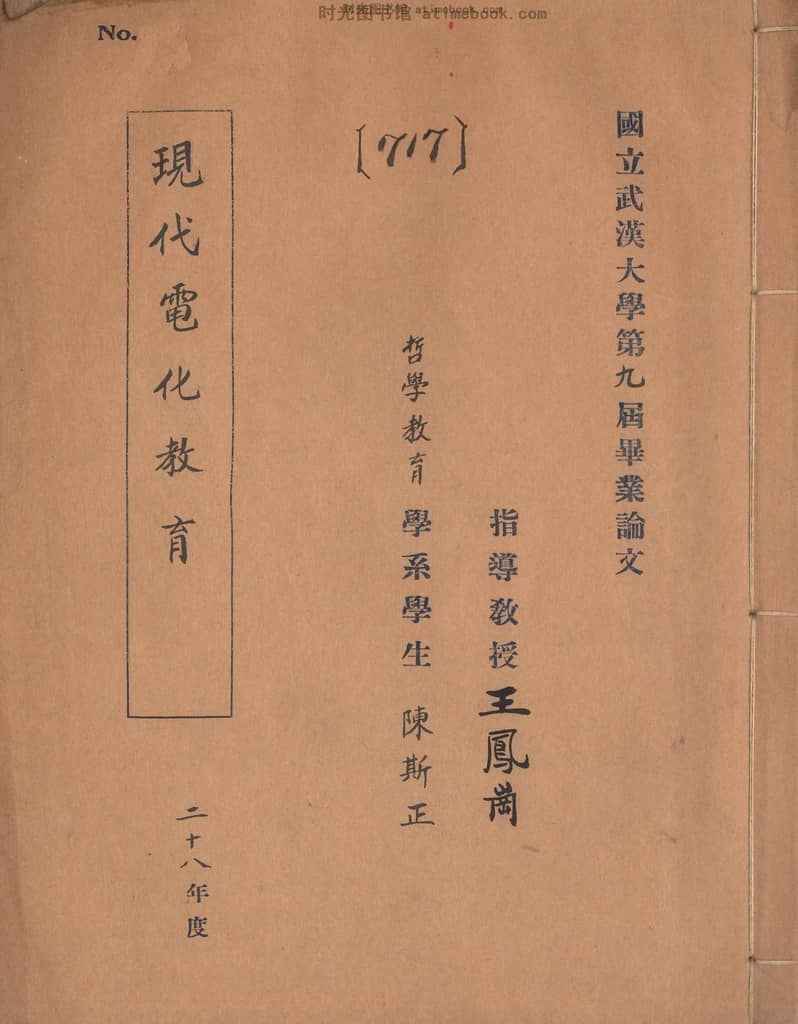 时光图书馆 atimebook.com
时光图书馆 atimebook.com
No.
〔717〕
國立武漢大學第九屆畢業論文
指導教授 王鳳崗
哲學教育學系學生 陳斯正
現代電化教育
二十八年度